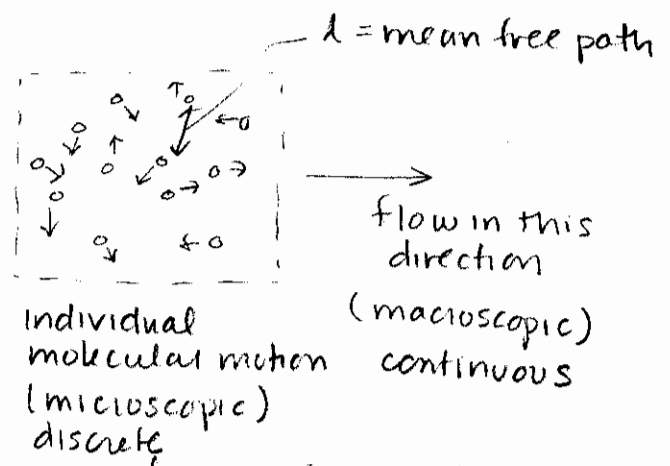 λ = mean free path
flow in this
direction
(macroscopic)
continuous
individual
molecular motion
(microscopic)
discrete